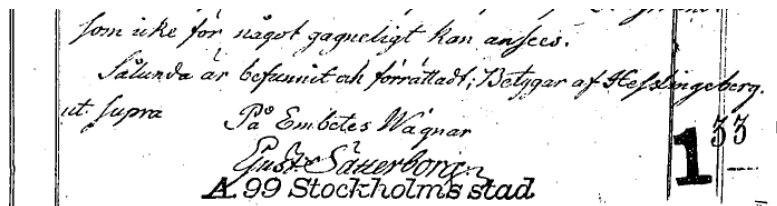 som icke för något gagneligt kan ansees.
Sålunda är befunnit och förrättadt; Betygar af Hesslingeberg.
ut supra
På Embetes Wägnar
Gust. Säuerborg
1 33
A 99 Stockholms stad